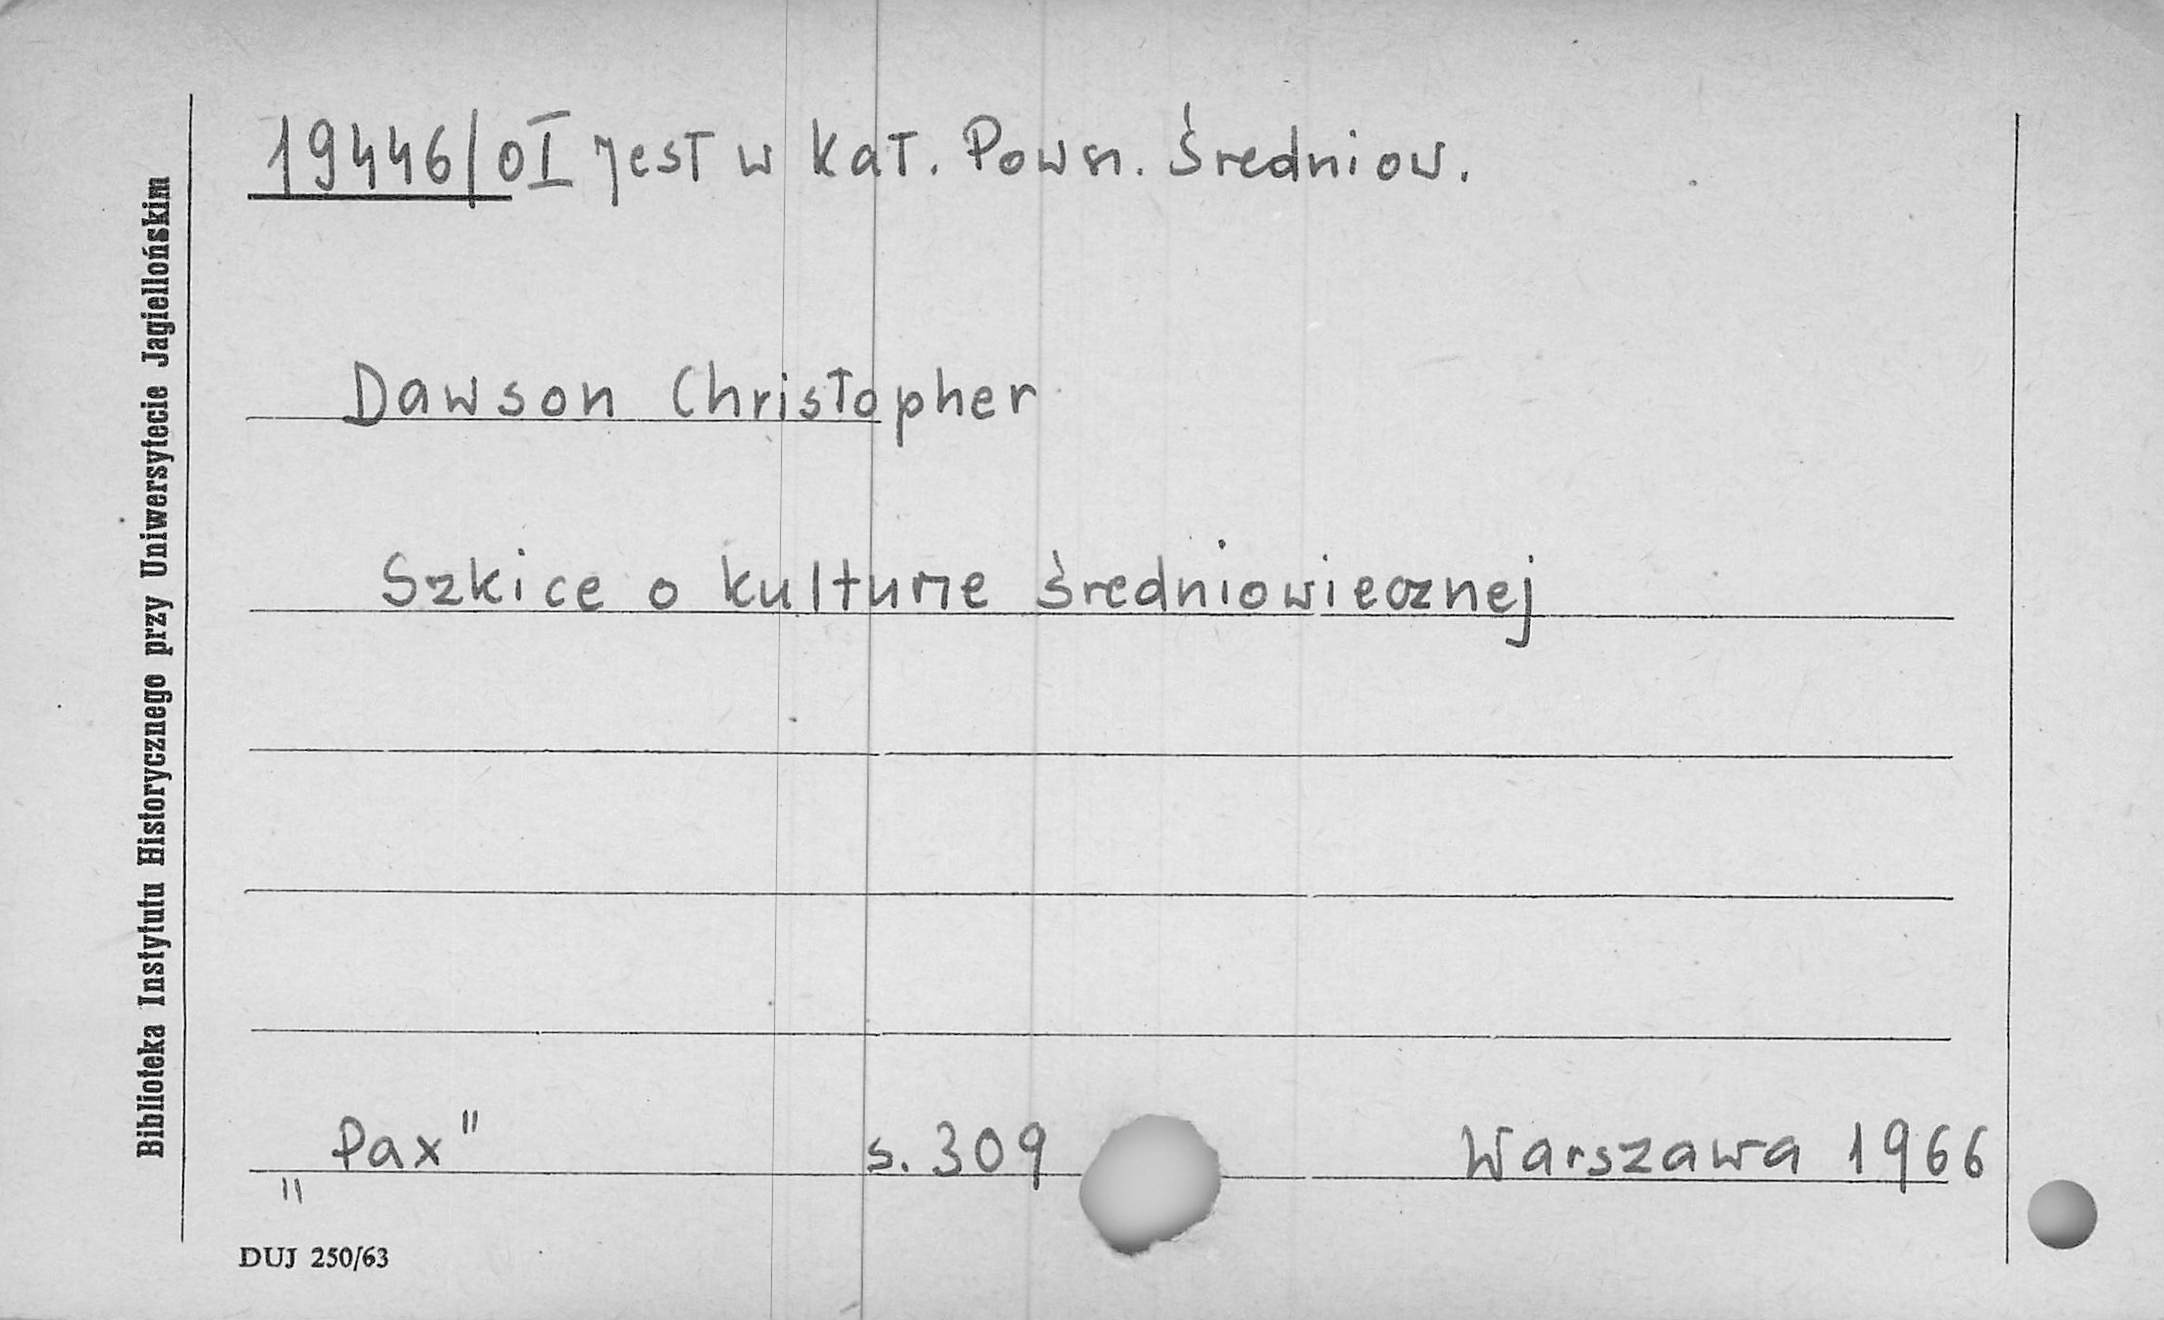 Biblioteka Instytutu Historycznego przy Uniwersytecie Jagiellońskim
19446/OI jest w kat. Pows. Średniow.
Dawson Christopher
Szkice o kulturze średniowiecznej
„Pax" s. 309 Warszawa 1966
DUJ 250/63